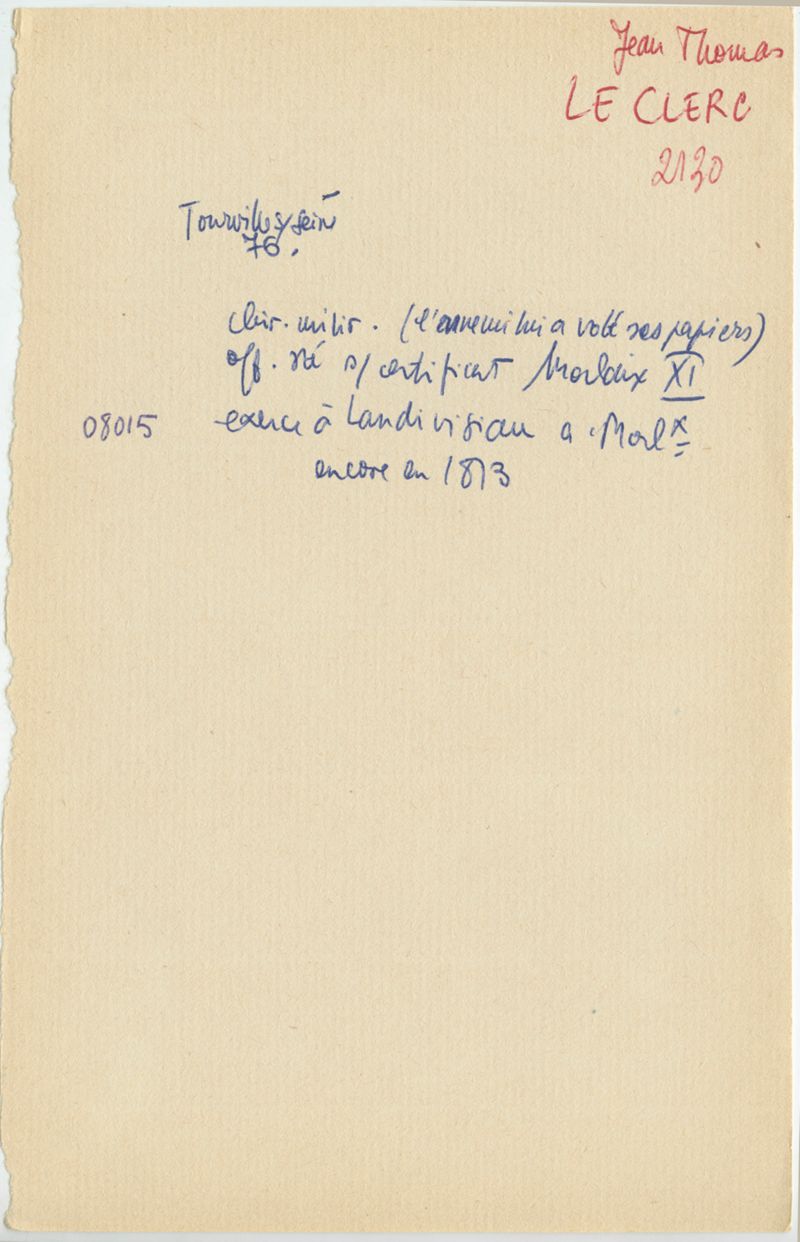 Jean Thomas
LE CLERC
2130
Tourville s/ seine
76.
chir. milir. (l'ennemi lui a volé ses papiers)
off. sté s/ certificat Morlaix XI
08015 exerce à Landivisiau a Morlx
encore en 1813